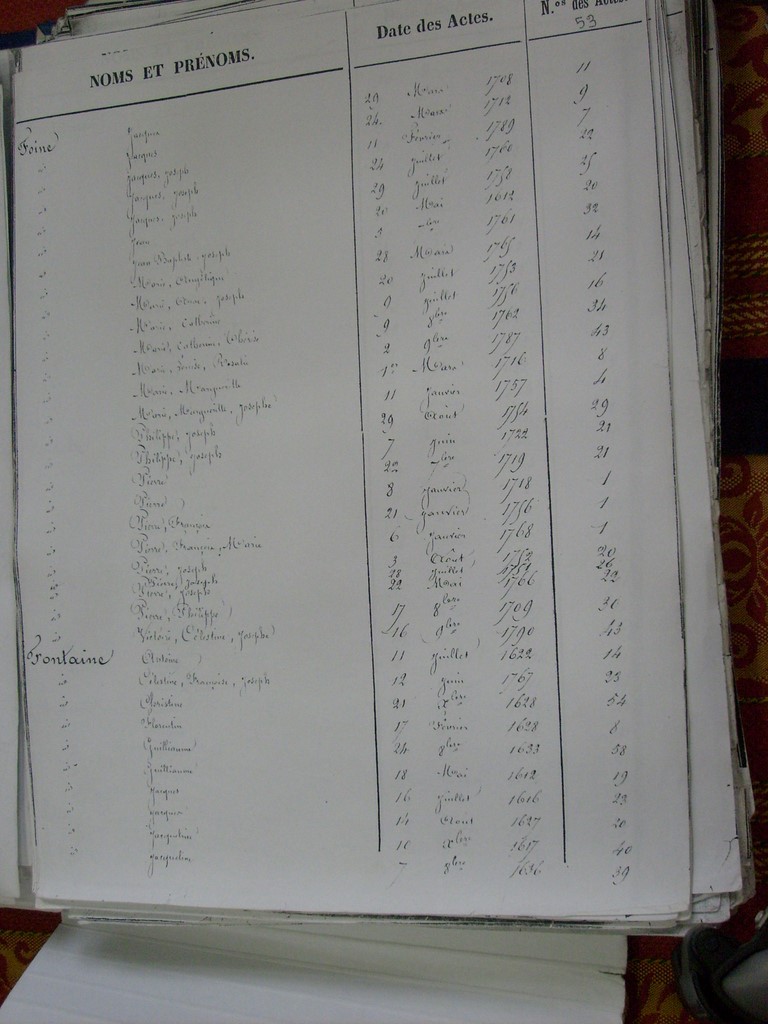 NOMS ET PRÉNOMS. Date des Actes. N.os des Actes.
53
Foine Jacques 29 Mars 1708 11
" Jacques 24 Mars 1712 9
" Jacques, Joseph 11 Février 1789 7
" Jacques, Joseph 24 Juillet 1760 22
" Jacques, Joseph 29 Juillet 1758 25
" Jean 20 Mai 1612 20
" Jean Baptiste, Joseph 3 7bre 1761 32
" Marie, Angélique 28 Mars 1765 14
" Marie, Anne, Joseph 20 Juillet 1753 21
" Marie, Catherine 9 Juillet 1756 16
" Marie, Catherine, Thérèse 9 8bre 1762 34
" Marie, Louise, Rosalie 2 9bre 1787 43
" Marie, Marguerite 1er Mars 1716 8
" Marie, Marguerite, Josephe 11 Janvier 1757 4
" Philippe, Joseph 29 Août 1754 29
" Philippe, Joseph 7 Juin 1722 21
" Pierre 22 7bre 1719 21
" Pierre 8 Janvier 1718 1
" Pierre, François 21 Janvier 1756 1
" Pierre, François, Marie 6 Janvier 1768 1
" Pierre, Joseph 3 Août 1752 20
" Pierre, Joseph 28 Juillet 1754 26
" Pierre, Joseph 22 Mai 1766 22
" Pierre, Philippe 17 8bre 1709 30
" Victoire, Célestine, Josephe 16 9bre 1790 43
Fontaine Antoine 11 Juillet 1622 14
" Célestine, Françoise, Joseph 12 Juin 1767 23
" Christine 21 Xbre 1628 54
" Florentin 17 Février 1628 8
" Guilliaume 24 8bre 1633 58
" Guilliaume 18 Mai 1612 19
" Jacques 16 Juillet 1616 23
" Jacques 14 Août 1627 20
" Jacqueline 10 Xbre 1617 40
" Jacqueline 7 8bre 1636 39